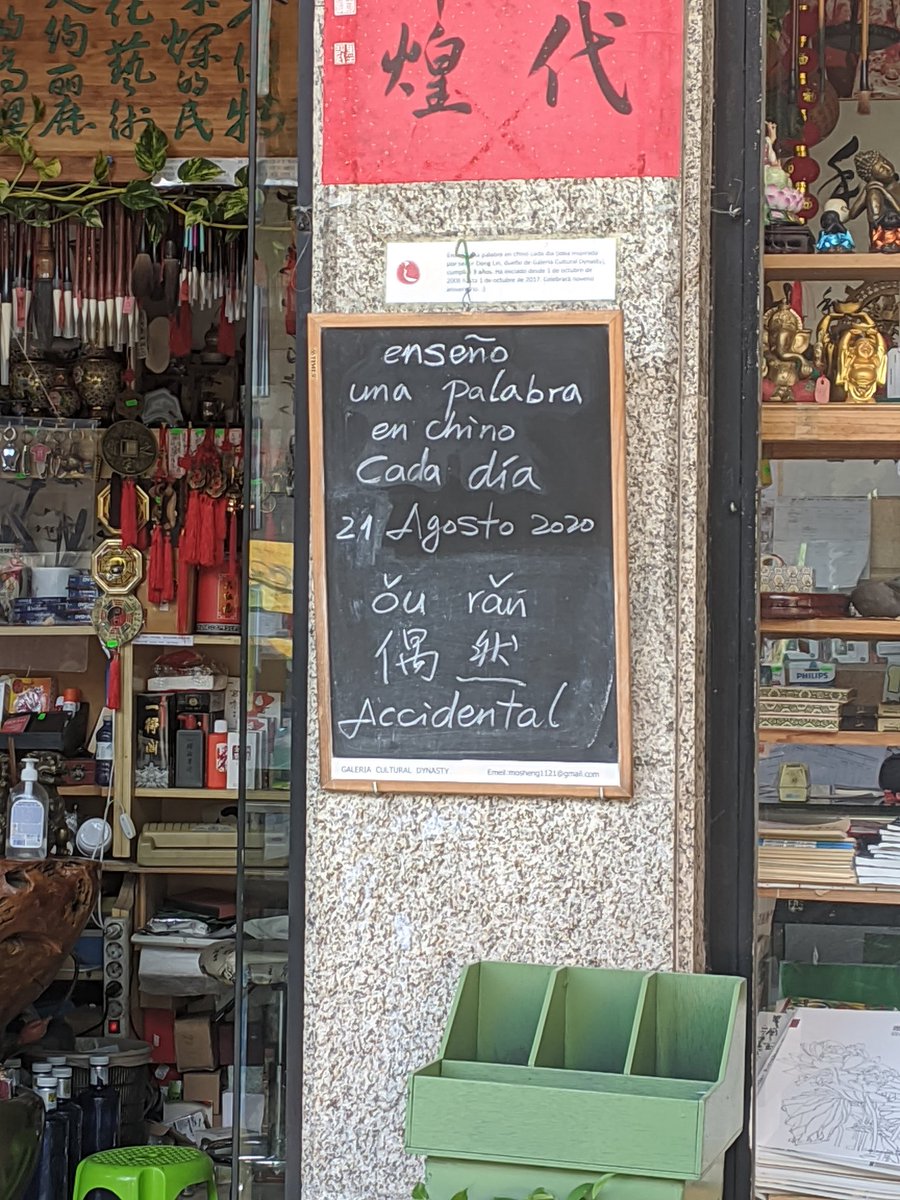 燦的民
化藝術
絢麗
代
煌
palabra en chino cada día (idea inspirada
por señor Dong Lin, dueño de Galeria Cultural Dynasty),
años. Ha iniciado desde 1 de octubre de
2008 hasta 1 de octubre de 2017. Celebrará noveno
aniversario :)
enseño
una palabra
en chino
Cada día
21 Agosto 2020
ǒu rǎn
偶 然
Accidental
GALERIA CULTURAL DYNASTY Emeil:mosheng1121@gmail.com
PHILIPS